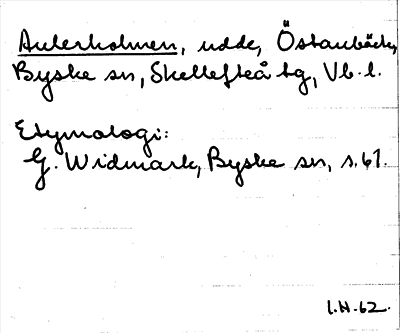 Aulerholmen, udde, Östanbäck,
Byske sn, Skellefteå tg, Vb. l.
Etymologi:
G. Widmark, Byske sn, s. 61.
I.H.62.